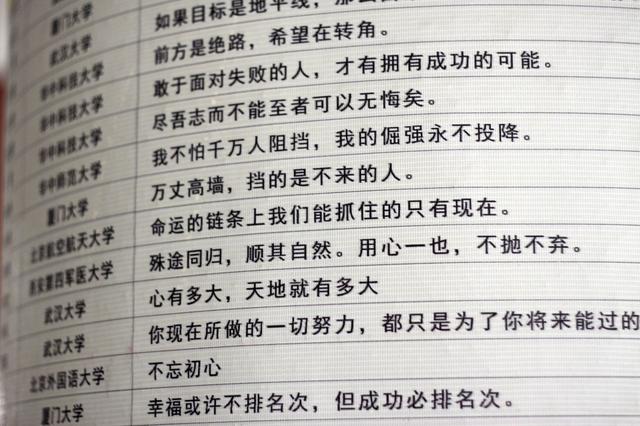 厦门大学
武汉大学 如果目标是地平线，那么
华中科技大学 前方是绝路，希望在转角。
华中科技大学 敢于面对失败的人，才有拥有成功的可能。
华中科技大学 尽吾志而不能至者可以无悔矣。
华中师范大学 我不怕千万人阻挡，我的倔强永不投降。
厦门大学 万丈高墙，挡的是不来的人。
北京航空航天大学 命运的链条上我们能抓住的只有现在。
西安第四军医大学 殊途同归，顺其自然。用心一也，不抛不弃。
武汉大学 心有多大，天地就有多大
武汉大学 你现在所做的一切努力，都只是为了你将来能过的
北京外国语大学 不忘初心
厦门大学 幸福或许不排名次，但成功必排名次。